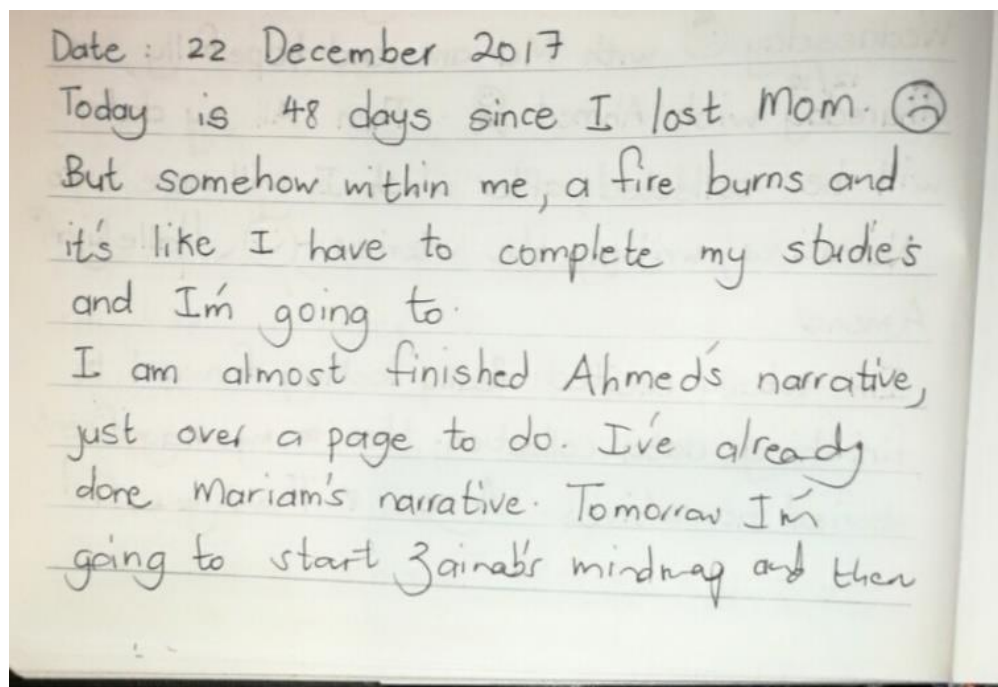 Date : 22 December 2017
Today is 48 days since I lost Mom. ☹
But somehow within me, a fire burns and
it's like I have to complete my studies
and I'm going to.
I am almost finished Ahmed's narrative,
just over a page to do. I've already
done Mariam's narrative. Tomorrow I'm
going to start Zainab's mindmap and then